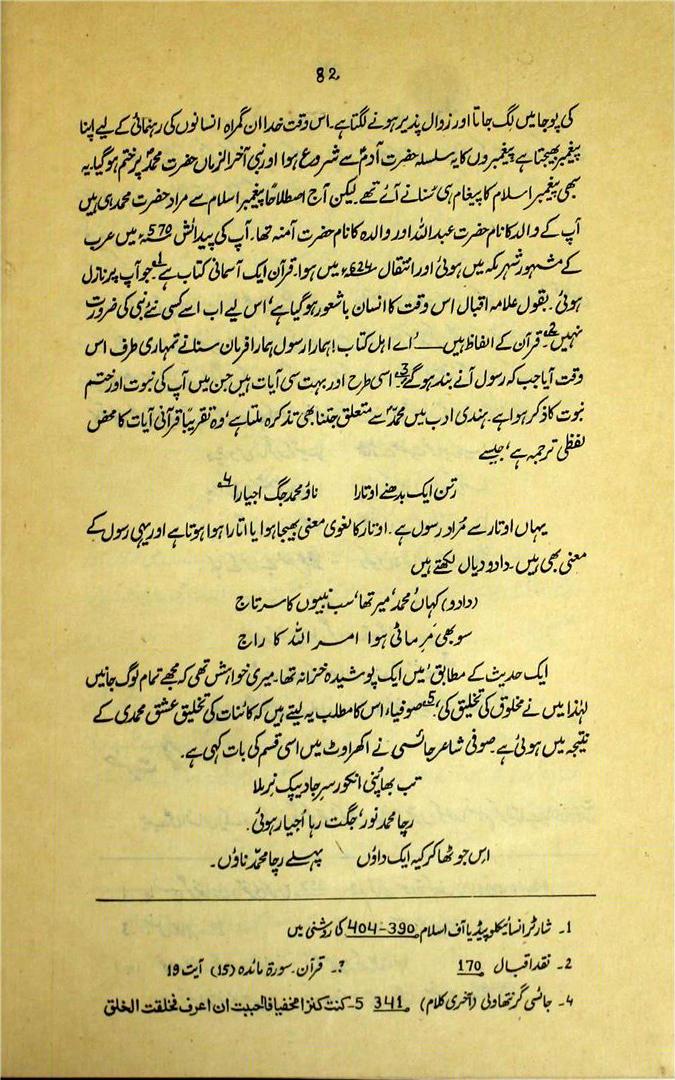 82
کی پوجا میں لگ جاتا اور زوال پذیر ہونے لگتا ہے۔ اس وقت خدا ان گمراہ انسانوں کی رہنمائی کے لیے اپنا
پیغمبر بھیجتا ہے پیغمبروں کا یہ سلسلہ حضرت آدمؑ سے شروع ہوا اور نبی آخر الزماں حضرت محمدؐ پر ختم ہو گیا۔ یہ
سبھی پیغمبر اسلام کا پیغام ہی سنانے آئے تھے لیکن آج اصطلاحاً پیغمبر اسلام سے مراد حضرت محمد ہی ہیں
آپ کے والد کا نام حضرت عبداللہ اور والدہ کا نام حضرت آمنہ تھا۔ آپ کی پیدائش 570ء میں عرب
کے مشہور شہر مکہ میں ہوئی اور انتقال 624ء میں ہوا۔ قرآن ایک آسمانی کتاب ہے1 جو آپ پر نازل
ہوئی۔ بقول علامہ اقبال اس وقت کا انسان باشعور ہو گیا ہے، اس لیے اب اسے کسی نئے نبی کی ضرورت
نہیں2۔ قرآن کے الفاظ ہیں ــــ 'اے اہل کتاب! ہمارا رسول ہمارا فرمان سنانے تمہاری طرف اس
وقت آیا جب کہ رسول آنے بند ہو گئے'3 اسی طرح اور بہت سی آیات ہیں جن میں آپ کی نبوت اور ختم
نبوت کا ذکر ہوا ہے۔ ہندی ادب میں محمدؐ سے متعلق جتنا بھی تذکرہ ملتا ہے، وہ تقریباً قرآنی آیات کا محض
لفظی ترجمہ ہے، جیسے
رتن ایک بدھنے اوتارا ناؤ محمد جگ اجیارا4
یہاں اوتار سے مراد رسول ہے۔ اوتار کا لغوی معنی بھیجا ہوا یا اتارا ہوا ہوتا ہے اور یہی رسول کے
معنی بھی ہیں۔ دادو دیال لکھتے ہیں
(دادو) کہاں محمد میر تھا، سب نبیوں کا سرتاج
سو بھی مر ماٹی ہوا امر اللہ کا راج
ایک حدیث کے مطابق 'میں ایک پوشیدہ خزانہ تھا۔ میری خواہش تھی کہ مجھے تمام لوگ جانیں
لہٰذا میں نے مخلوق کی تخلیق کی'5 صوفیاء اس کا مطلب یہ لیتے ہیں کہ کائنات کی تخلیق عشق محمدی کے
نتیجہ میں ہوئی ہے۔ صوفی شاعر جائسی نے اکھراوٹ میں اسی قسم کی بات کہی ہے۔
تب بھا پُنی انکور سرجا دیپک نرملا
رچا محمد نور، جگت رہا اُجیار ہوئی۔
ایس جو ٹھاکر کیہ ایک داؤں پہلے رچا محمدؐ ناؤں۔
1۔ شارٹر انسائیکلوپیڈیا آف اسلام 390-404 کی روشنی میں
2۔ نقد اقبال 170 3۔ قرآن۔ سورۃ مائدہ (15) آیت 19
4۔ جائسی گرنتھاولی (آخری کلام) 341 5۔ کنت کنزا مخفیا فاحببت ان اعرف فخلقت الخلق